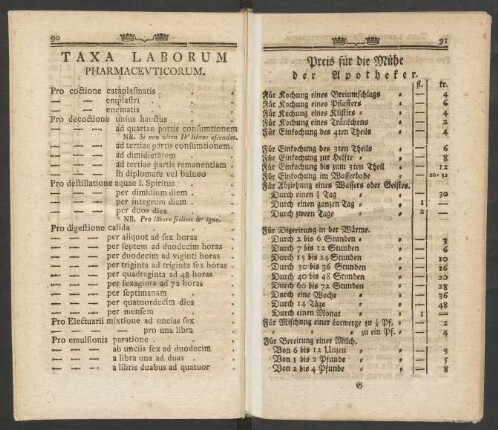 90
TAXA LABORUM
PHARMACEVTICORUM.
Pro coctione cataplasmatis
— — emplastri
— — enematis
Pro decoctione unius haustus
— — ad quartae partis consumtionem
NB. Si non ultra IV librae assumtae.
— — ad tertiae partis consumtionem.
— — ad dimidietatem
— — ad tertiae partis remanentiam
— — in diplomate vel balneo
Pro destillatione aquae l. Spiritus
— — per dimidium diem
— — per integrum diem
— — per duos dies
NB. Pro labore simul & igne.
Pro digestione calida
— — per aliquot ad sex horas
— — per septem ad duodecim horas
— — per duodecim ad viginti horas
— — per triginta ad triginta sex horas
— — per quadraginta ad 48 horas
— — per sexaginta ad 72 horas
— — per septimanam
— — per quatuordecim dies
— — per mensem
Pro Electuarii mixtione ad uncias sex
— — pro una libra
Pro emulsionis paratione
— — ab unciis sex ad duodecim
— — a libra una ad duas
— — a libris duabus ad quatuor
91
Preis für die Mühe
der Apotheker.
fl. kr.
Für Kochung eines Breiumschlags — 4
Für Kochung eines Pflasters — 6
Für Kochung eines Klistirs — 4
Für Kochung eines Tränkchens — 2
Für Einkochung des 4ten Theils — 4
Für Einkochung des 3ten Theils — 6
Für Einkochung zur Helfte — 8
Für Einkochung bis zum 3ten Theil — 12
Für Einkochung im Wasserbade — 20-32
Für Abziehung eines Wassers oder Geistes.
Durch einen ½ Tag — 30
Durch einen ganzen Tag 1 —
Durch zween Tage 2 —
Für Digerirung in der Wärme.
Durch 2 bis 6 Stunden — 3
Durch 7 bis 12 Stunden — 6
Durch 15 bis 24 Stunden — 10
Durch 30 bis 36 Stunden — 16
Durch 40 bis 48 Stunden — 20
Durch 60 bis 72 Stunden — 28
Durch eine Woche — 36
Durch 14 Täge — 48
Durch einen Monat 1 —
Für Mischung einer Latwerge zu ½ Pf. — 2
zu ein Pf. — 4
Für Bereitung einer Milch.
Von 6 bis 12 Unzen — 3
Von 1 bis 2 Pfunde — 5
Von 2 bis 4 Pfunde — 8
G